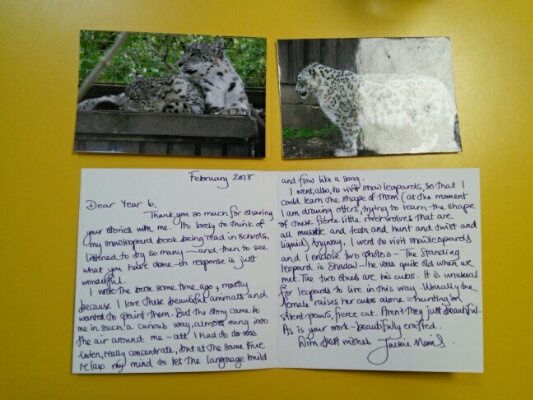 February 2018
Dear Year 6,
Thank you so much for sharing
your stories with me. Its lovely to think of
my snow leopard book being read in schools,
listened to by so many — and then to see
what you have done in response is just
wonderful.
I wrote the book some time ago, mostly
because I love these beautiful animals and
wanted to paint them. But the story came to
me in such a curious way, almost sung into
the air around me — all I had to do was
listen, really concentrate, but at the same time
relax my mind to let the language build
and flow like a song.
I went, also, to visit snow leopards, so that I
could learn the shape of them (at the moment
I am drawing otters, trying to learn the shape
of these fierce little river wolves that are
all muscle and tooth and hunt and twist and
liquid). Anyway, I went to visit snow leopards
and I enclose two photos — The standing
leopard is Shadow — he was quite old when we
met. The two others are his cubs. It is unusual
for leopards to live in this way. Usually the
female raises her cubs alone — hunting on
silent paws, fierce cat. Aren't they just beautiful.
As is your work — beautifully crafted.
With best wishes